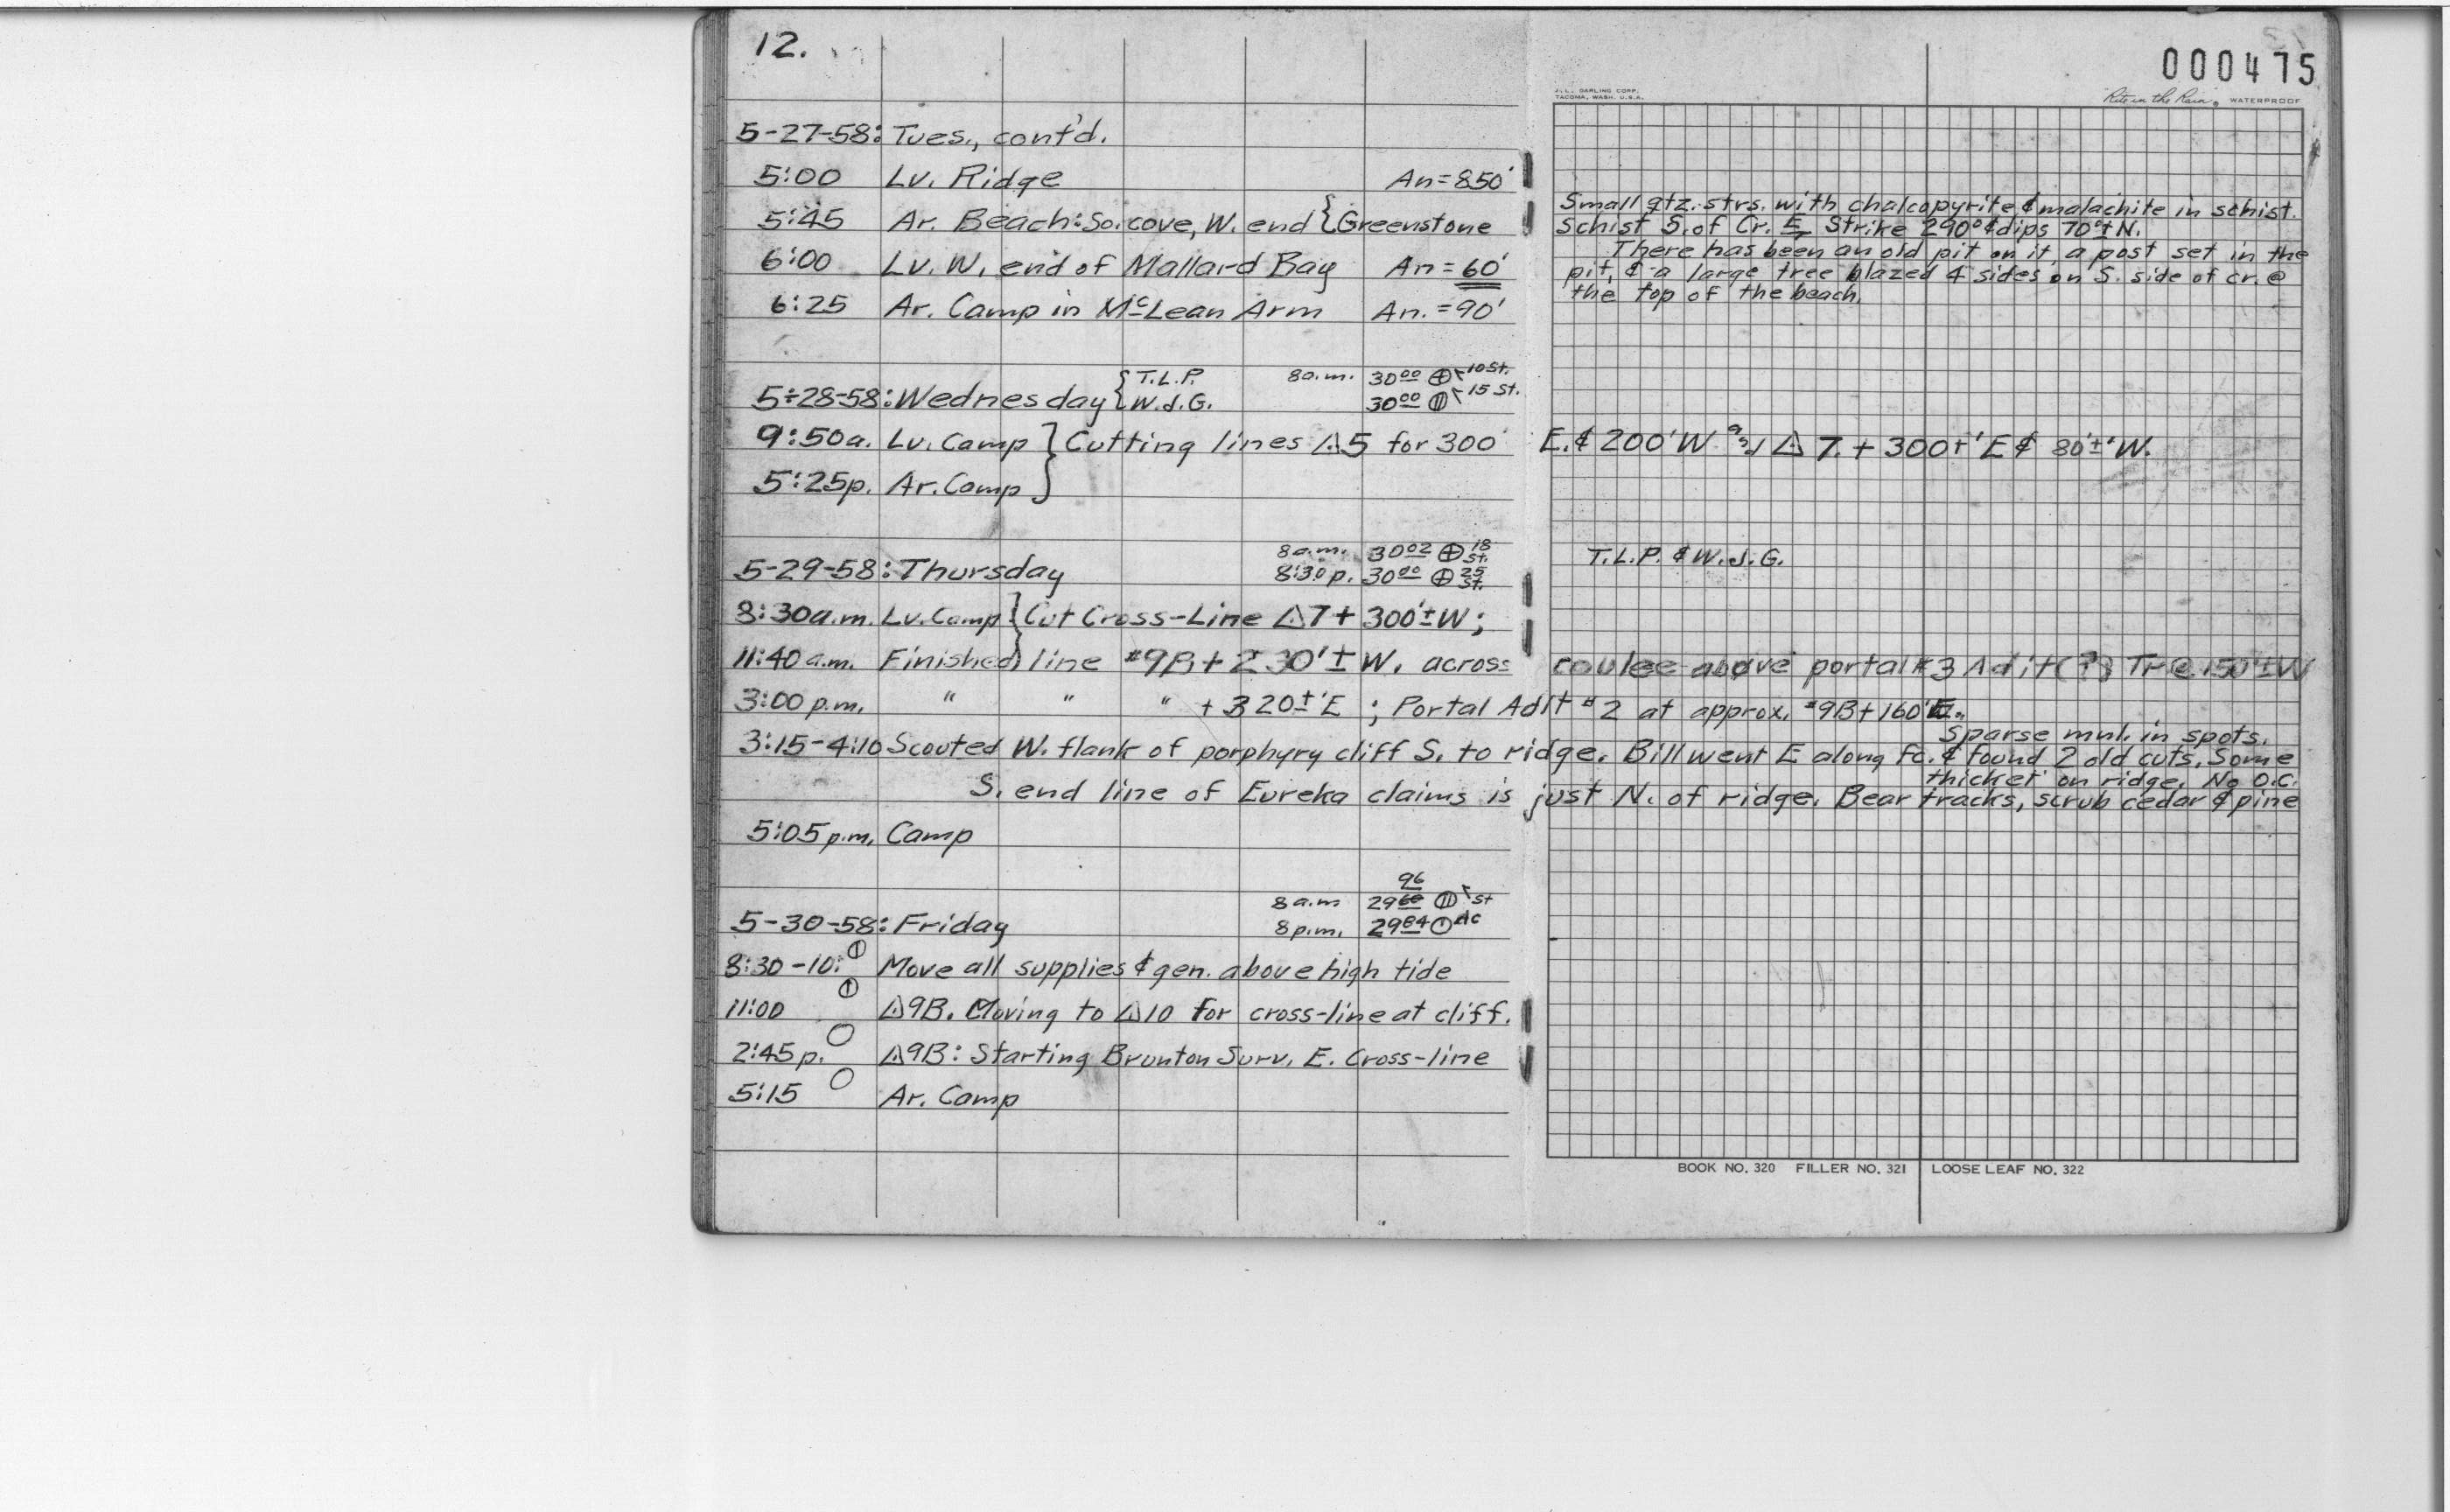 12.
000475
J. L. DARLING CORP.
TACOMA, WASH. U.S.A.
"Rite in the Rain" WATERPROOF
5-27-58: Tues., cont'd.
5:00 Lv. Ridge An=850'
5:45 Ar. Beach: So. cove, W. end { Greenstone
Small qtz. strs. with chalcopyrite & malachite in schist.
Schist S. of Cr. Strike 290° & dips 70°± N.
6:00 Lv. W. end of Mallard Bay An=60'
There has been an old pit on it, a post set in the
pit, & a large tree blazed 4 sides on S. side of cr. @
the top of the beach.
6:25 Ar. Camp in McLean Arm An.=90'
5-28-58: Wednesday { T.L.P. 8a.m. 30 00 ⊕ 10 St.
W.J.G. 30 00 15 St.
9:50a. Lv. Camp } Cutting lines △5 for 300' E. & 200' W △ 7. + 300±' E & 80'±' W.
5:25p. Ar. Camp }
8 a.m. 30 02 ⊕ 18 St.
5-29-58: Thursday 8:30 p. 30 00 ⊕ 25 St. T.L.P. & W.J.G.
8:30a.m. Lv. Camp } Cut Cross-Line △7+ 300'± W;
11:40 a.m. Finished } line #9B+230'± W. across coulee above portal #3 Adit(?) @ 150'± W
3:00 p.m. " " " + 320±' E ; Portal Adit #2 at approx. #9B+160' E.
3:15-4:10 Scouted W. flank of porphyry cliff S. to ridge. Bill went E along fc. & found 2 old cuts. Some
Sparse mnl. in spots.
S. end line of Eureka claims is just N. of ridge. Bear tracks, scrub cedar & pine
thicket on ridge. No O.C.
5:05 p.m. Camp
96
8 a.m 29 60 St
5-30-58: Friday 8 p.m. 29 84 Nc
8:30-10: Move all supplies & gen. above high tide
11:00 △9B. Moving to △10 for cross-line at cliff.
2:45 p. △9B: Starting Brunton Surv. E. Cross-line
5:15 Ar. Camp
BOOK NO. 320 FILLER NO. 321 LOOSE LEAF NO. 322